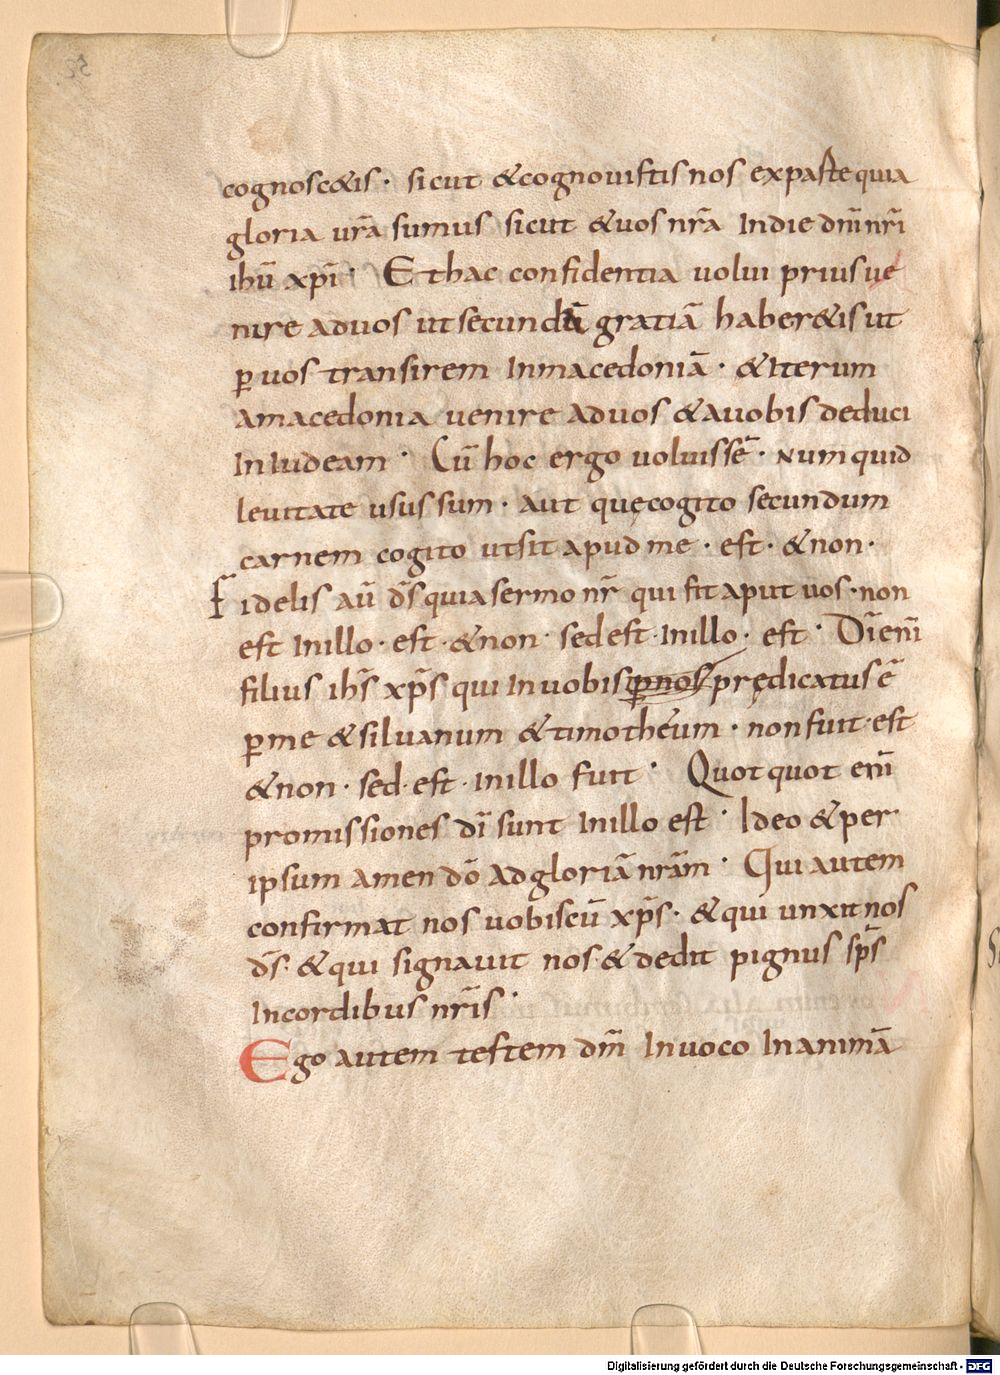 cognosc&is · sicut &cognouistis nos exparte quia
gloria urā sumus sicut &uos nrā Indie dnī nrī
ihū xpī · Ethac confidentia uolui prius ue
nire aduos ut secundū gratiā haber&is ut
ꝑ uos transirem Inmacedoniā · &Iterum
amacedonia uenire aduos &auobis deduci
InIudeam · Cū hoc ergo uoluissē · Numquid
leuitate usus sum · aut quę cogito secundum
carnem cogito utsit apud me · est · &non ·
Fidelis aū d̄s quia sermo nr̄ qui fit aput uos · non
est Inillo · est · &non · sed est · Inillo · est · Dī enī
filius ih̄s xp̄s qui Inuobis ꝑnos prędicatus ē
ꝑ me &siluanum &timotheum · non fuit · est
&non · sed · est · Inillo fuit · Quotquot enī
promissiones dī sunt Inillo est · Ideo &per
ipsum amen dō Adgloriā nrām · Qui autem
confirmat nos uobiscū xp̄s · &qui unxit nos
d̄s · &qui signauit nos &dedit pignus sp̄s
Incordibus nrīs ·
Ego autem testem dm̄ Inuoco Inanimā
Digitalisierung gefördert durch die Deutsche Forschungsgemeinschaft - DFG